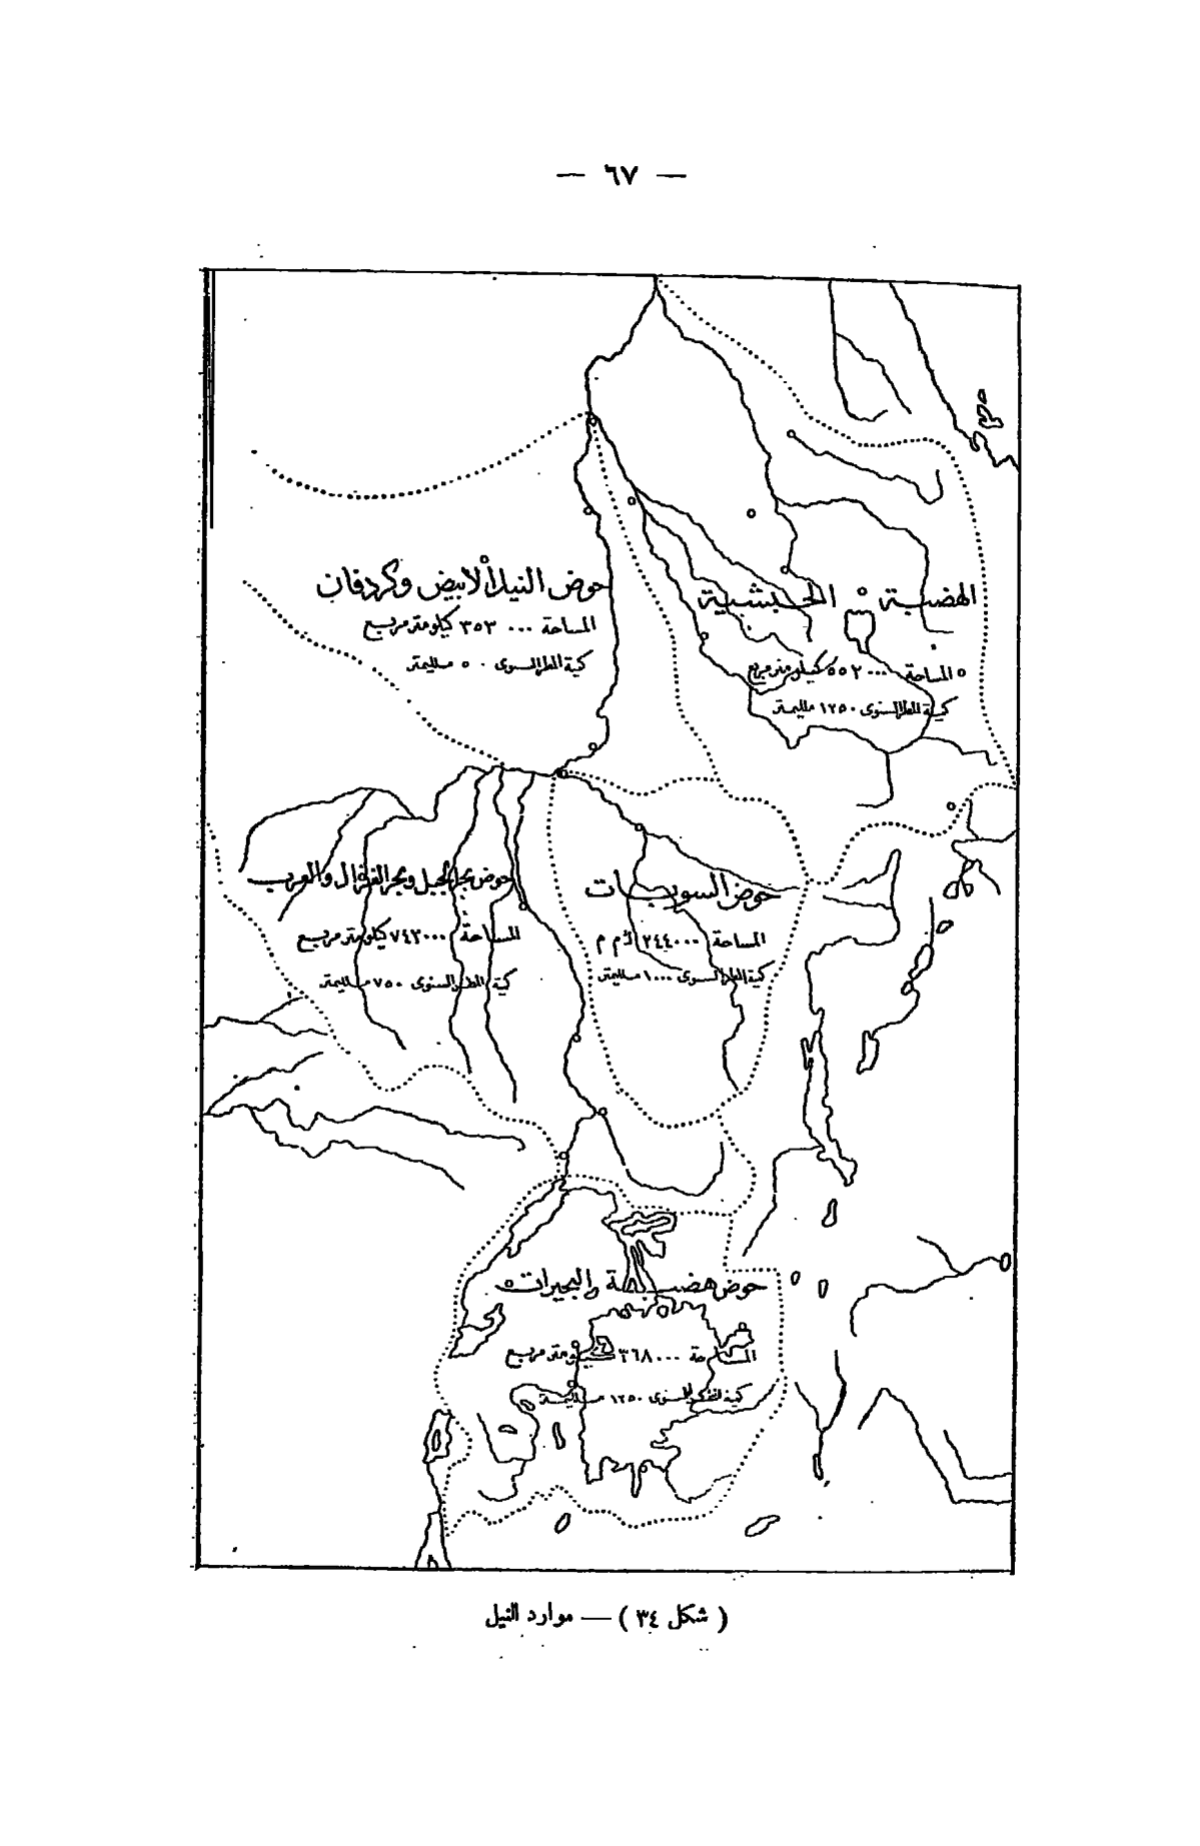 — ٦٧ —
حوض النيل الأبيض وكردفان
المساحة ٣٥٣٠٠٠ كيلومتر مربع
كمية المطر السنوى ٥٠٠ ملليمتر
الهضبة الحبشية
المساحة ٥٥٢٠٠٠ كيلومتر مربع
كمية المطر السنوى ١٢٥٠ ملليمتر
حوض بحر الجبل وبحر الغزال والعرب
المساحة ٧٤٢٠٠٠ كيلومتر مربع
كمية المطر السنوى ٧٥٠ ملليمتر
حوض السوبات
المساحة ٢٤٤٠٠٠ ك م م
كمية المطر السنوى ١٠٠٠ ملليمتر
حوض هضبة والبحيرات
المساحة ٣٦٨٠٠٠ كيلومتر مربع
كمية السنوى ١٢٥٠ ملليمتر
( شكل ٣٤ ) — موارد النيل